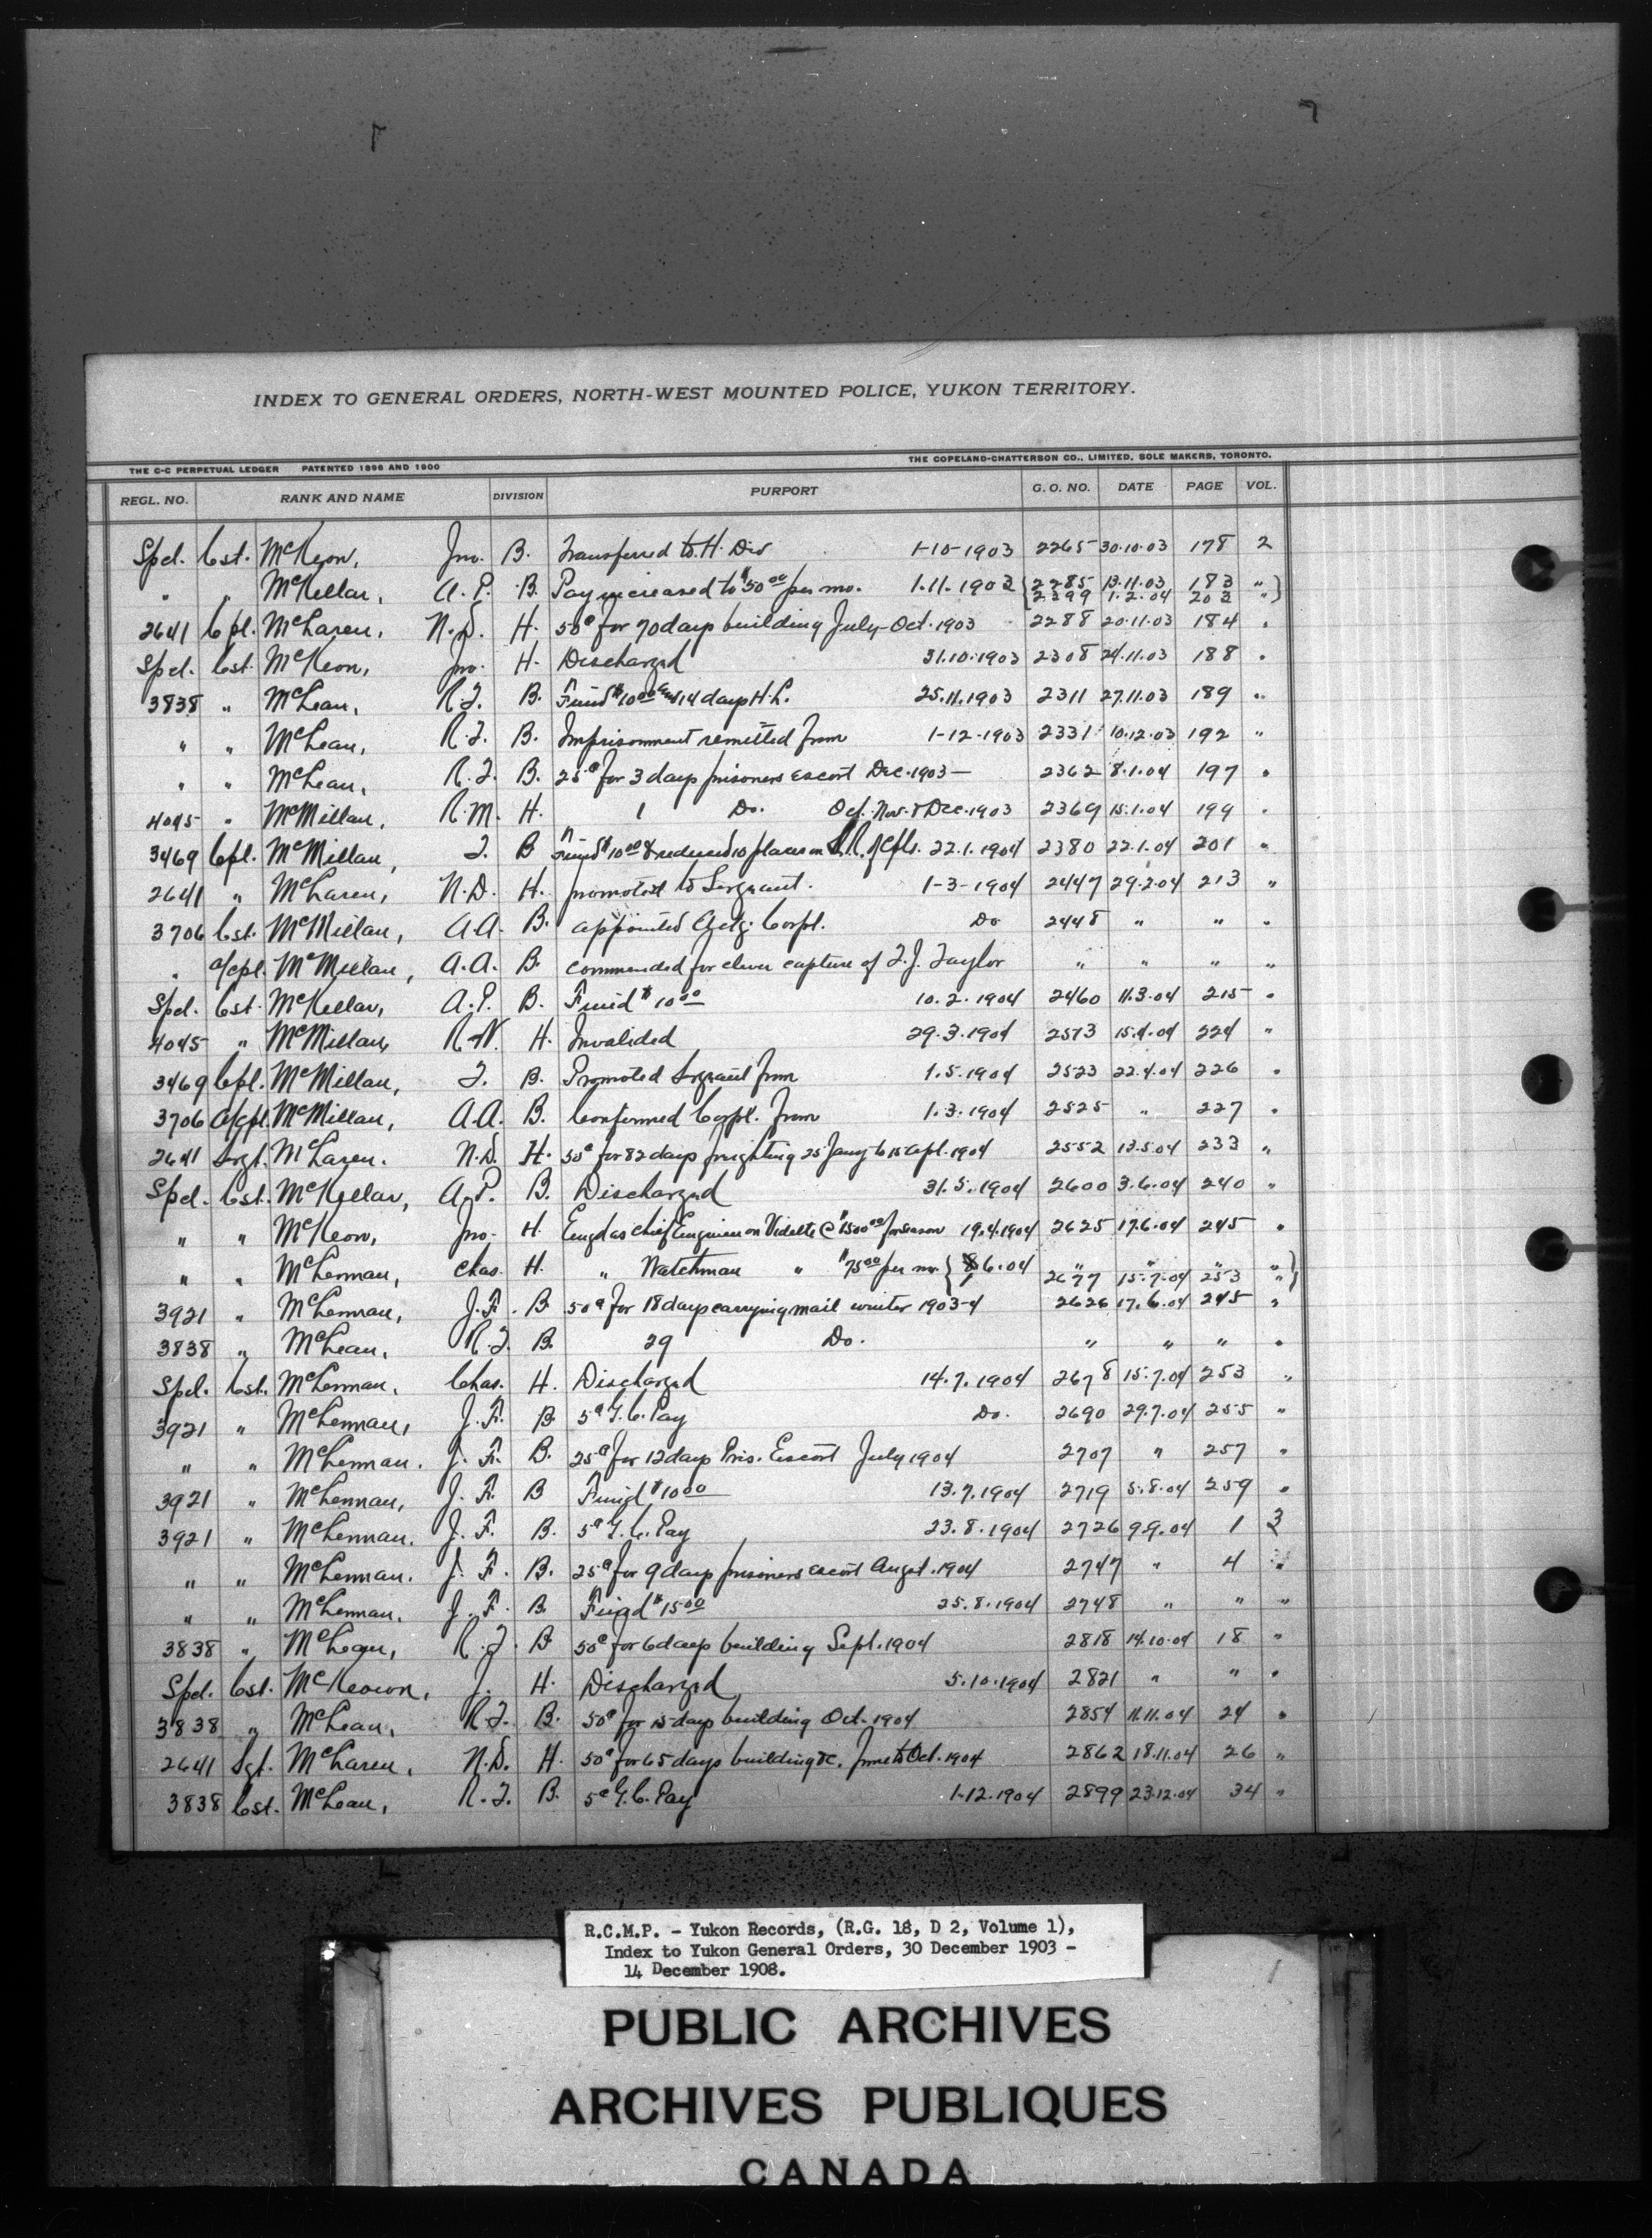 INDEX TO GENERAL ORDERS, NORTH-WEST MOUNTED POLICE, YUKON TERRITORY.
THE C-C PERPETUAL LEDGER PATENTED 1896 AND 1900 THE COPELAND-CHATTERSON CO., LIMITED, SOLE MAKERS, TORONTO.
REGL. NO. RANK AND NAME DIVISION PURPORT G. O. NO. DATE PAGE VOL.
Spcl. Cst. McKeon, Jno. B. Transferred to H. Div 1-10-1903 2265 30.10.03 178 2
" " McKellar, A. P. B. Pay increased to $50 00 per mo. 1.11.1903 { 2285 13.11.03 183 " }
2399 1.2.04 203 "
2641 Cpl. McLaren, N.D. H. 50¢ for 70 days building July-Oct. 1903 2288 20.11.03 184 "
Spcl. Cst. McKeon, Jno. H. Discharged 31.10.1903 2308 24.11.03 188 "
3838 " McLean, R.J. B. Fined $10 00 and 14 days H.L. 25.11.1903 2311 27.11.03 189 "
" " McLean, R.J. B. Imprisonment remitted from 1-12-1903 2331 10.12.03 192 "
" " McLean, R.J. B. 25¢ for 3 days prisoners escort Dec. 1903 — 2362 8.1.04 197 "
4045 " McMillan, R.M. H. 1 Do. Oct. Nov. & Dec. 1903 2369 15.1.04 199 "
3469 Cpl. McMillan, J. B Fined $10 00 & reduced 10 places on S.R. of Cpls. 22.1.1904 2380 22.1.04 201 "
2641 " McLaren, N.D. H. promoted to Sergeant. 1-3-1904 2447 29.2.04 213 "
3706 Cst. McMillan, A.A. B. appointed Actg. Corpl. Do 2448 " " "
" a/cpl. McMillan, A.A. B. commended for clever capture of J.J. Taylor " " " "
Spcl. Cst. McKellar, A.P. B. Fined $10 00 10.2.1904 2460 11.3.04 215 "
4045 " McMillan, R H. Invalided 29.3.1904 2513 15.4.04 224 "
3469 Cpl. McMillan, J. B. Promoted Sergeant from 1.5.1904 2523 22.4.04 226 "
3706 A/Cpl. McMillan, A.A. B. Confirmed Corpl. from 1.3.1904 2525 " 227 "
2641 Srgt. McLaren. N.D. H. 50¢ for 82 days freighting 25 Jany to 15 Apl. 1904 2552 13.5.04 233 "
Spcl. Cst. McKellar, A.P. B. Discharged 31.5.1904 2600 3.6.04 240 "
" " McKeon, Jno. H. Engd as Chief Engineer on Vidette @ $1500 00 for season 19.4.1904 2625 17.6.04 245 "
" " McLennan, Chas. H. " Watchman " $75 00 per mo. { 6.04 " " " " }
2677 15.7.04 253 "
3921 " McLennan, J.F. B. 50¢ for 18 days carrying mail winter 1903-4 2626 17.6.04 245 "
3838 " McLean, R.J. B. 29 Do. " " " "
Spcl. Cst. McLennan, Chas. H. Discharged 14.7.1904 2678 15.7.04 253 "
3921 " McLennan, J.F. B. 5¢ G.C. Pay Do. 2690 29.7.04 255 "
" " McLennan. J.F. B. 25¢ for 12 days Pris. Escort July 1904 2707 " 257 "
3921 " McLennan, J.F. B Fined $10 00 13.7.1904 2719 5.8.04 259 "
3921 " McLennan. J.F. B. 5¢ G.C. Pay 23.8.1904 2726 9.9.04 1 3
" " McLennan. J.F. B. 25¢ for 9 days prisoners escort Augst. 1904 2747 " 4 "
" " McLennan. J.F. B. Fined $15 00 25.8.1904 2748 " " "
3838 " McLean, R.J. B 50¢ for 6 days building Sept. 1904 2818 14.10.04 18 "
Spcl. Cst. McKeown, J. H. Discharged 5.10.1904 2821 " " "
3838 " McLean, R.J. B. 50¢ for 15 days building Oct. 1904 2854 11.11.04 24 "
2641 Sgt. McLaren, N.D. H. 50¢ for 65 days building &c. June to Oct. 1904 2862 18.11.04 26 "
3838 Cst. McLean, R.J. B. 5¢ G.C. Pay 1-12.1904 2899 23.12.04 34 "
R.C.M.P. - Yukon Records, (R.G. 18, D 2, Volume 1),
Index to Yukon General Orders, 30 December 1903 -
14 December 1908.
PUBLIC ARCHIVES
ARCHIVES PUBLIQUES
CANADA